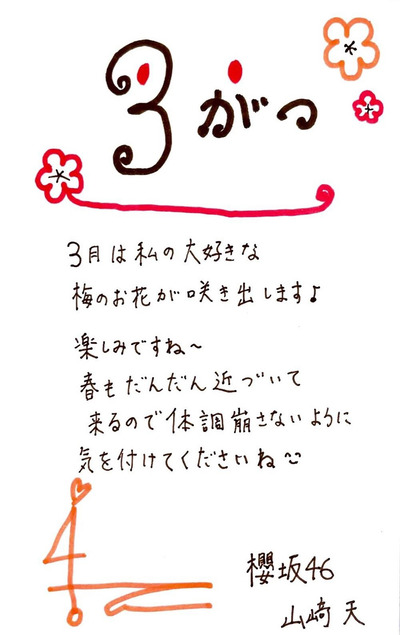 3がつ
3月は私の大好きな
梅のお花が咲き出します♪
楽しみですね〜
春もだんだん近づいて
来るので体調崩さないように
気を付けてくださいね
櫻坂46
山﨑 天